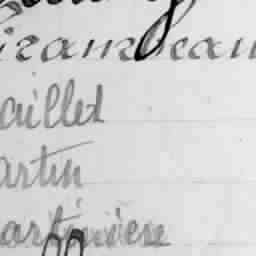 irambeau
aillet
artin
artinière